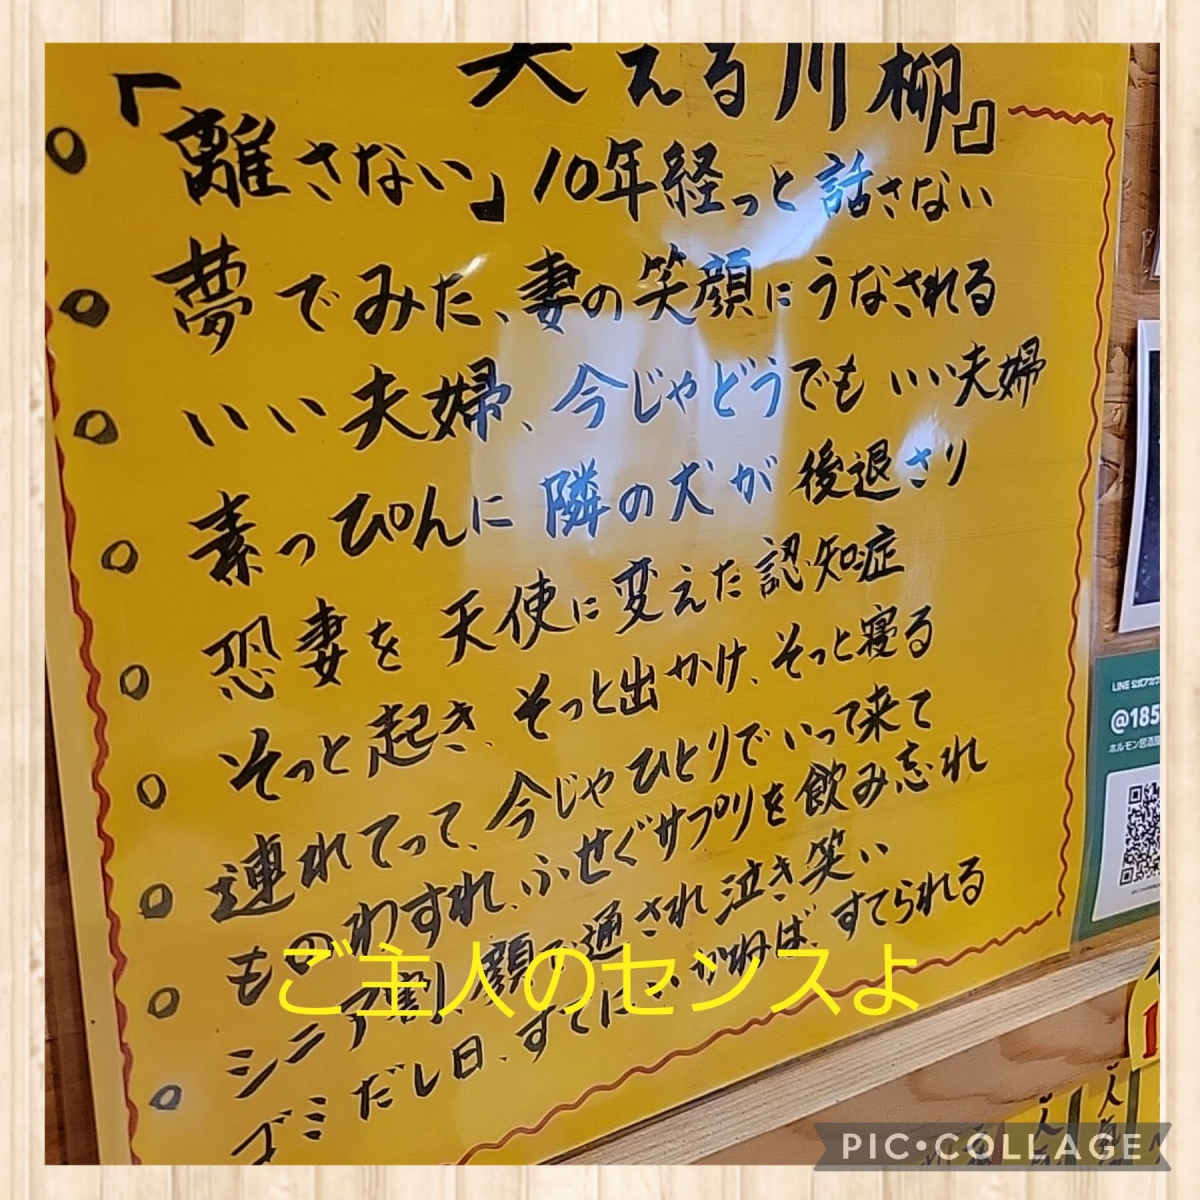 笑える川柳』
○「離さない」10年経っと話さない
○夢でみた、妻の笑顔にうなされる
○いい夫婦、今じゃどうでもいい夫婦
○素っぴんに隣の犬が後退さり
○恐妻を天使に変えた認知症
○そっと起き、そっと出かけ、そっと寝る
○連れてって、今じゃひとりでいって来て
○ものわすれ、ふせぐサプリを飲み忘れ
○シニア割、顔で通され泣き笑い
○ゴミだし日、すてにいかねばすてられる
ご主人のセンスよ
LINE 公式アカウ
@185
ホルモン居酒屋
人気
人気
PIC•COLLAGE